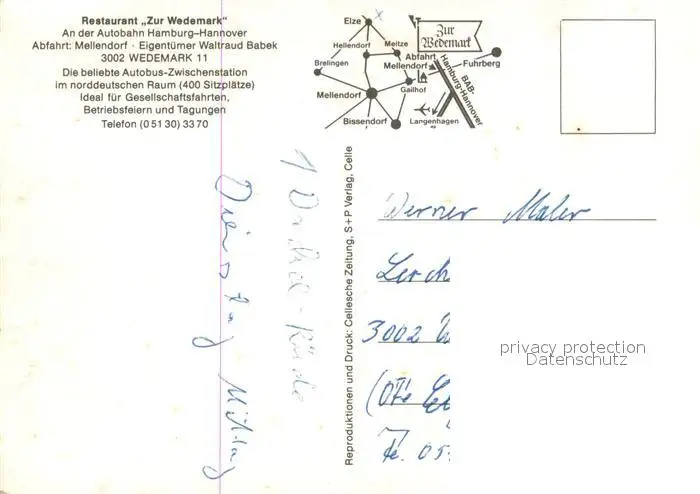 Restaurant „Zur Wedemark“
An der Autobahn Hamburg–Hannover
Abfahrt: Mellendorf · Eigentümer Waltraud Babek
3002 WEDEMARK 11
Die beliebte Autobus-Zwischenstation
im norddeutschen Raum (400 Sitzplätze)
Ideal für Gesellschaftsfahrten,
Betriebsfeiern und Tagungen
Telefon (0 51 30) 33 70
Elze
Hellendorf
Meitze
Brelingen
Mellendorf
Bissendorf
Zur
Wedemark
Abfahrt
Mellendorf
Gailhof
Fuhrberg
BAB-
Hamburg-Hannover
Langenhagen
Reproduktionen und Druck: Cellesche Zeitung, S+P Verlag, Celle
1
Dienstag Mittag
Werner Maler
Lerch
3002 W
(OTe
Te. 05
privacy protection
Datenschutz